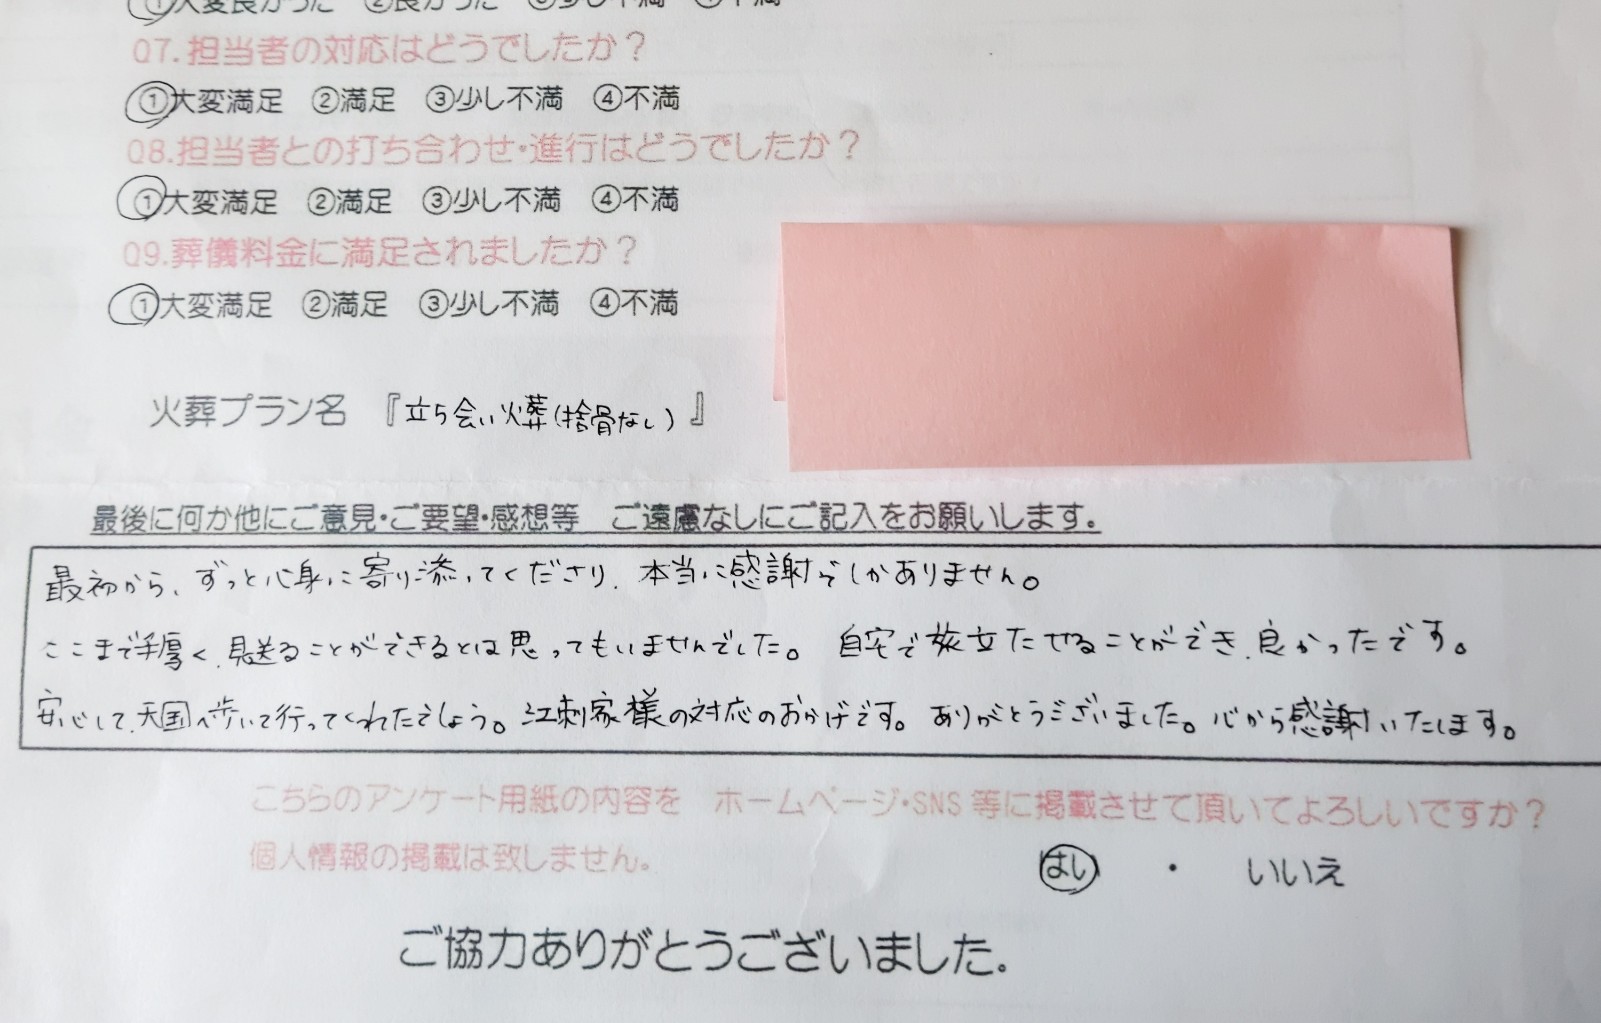 ①大変良かった ②良かった ③少し不満 ④不満
Q7.担当者の対応はどうでしたか？
①大変満足 ②満足 ③少し不満 ④不満
Q8.担当者との打ち合わせ・進行はどうでしたか？
①大変満足 ②満足 ③少し不満 ④不満
Q9.葬儀料金に満足されましたか？
①大変満足 ②満足 ③少し不満 ④不満
火葬プラン名 『立ち会い火葬(捨骨なし)』
最後に何か他にご意見・ご要望・感想等 ご遠慮なしにご記入をお願いします。
最初から、ずっと心身に寄り添ってくださり、本当に感謝でしかありません。
ここまで手厚く、見送ることができるとは思ってもいませんでした。自宅で旅立たせることができ、良かったです。
安心して、天国へ歩いて行ってくれたでしょう。江刺家様の対応のおかげです。ありがとうございました。心から感謝いたします。
こちらのアンケート用紙の内容を ホームページ・SNS 等に掲載させて頂いてよろしいですか？
個人情報の掲載は致しません。
はい ・ いいえ
ご協力ありがとうございました。